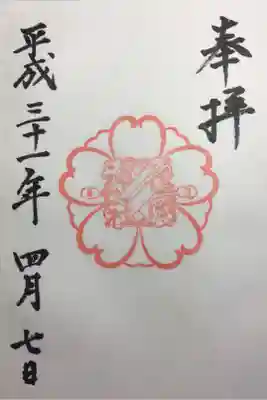 奉拝
平成三十一年 四月 七日